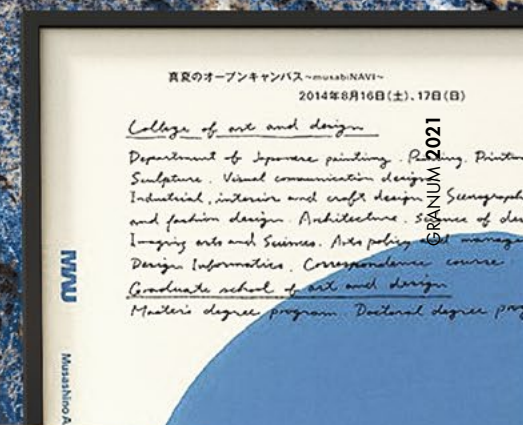 真夏のオープンキャンパス～musabiNAVI～
2014年8月16日(土)、17日(日)
College of art and design
Department of Japanese painting. Painting. Printm
Sculpture. Visual communication design
Industrial, interior and craft design. Scenograph
and fashion design. Architecture. Science of des
Imaging arts and Sciences. Arts policy and manage
Design Informatics. Correspondence course
Graduate school of art and design
Master's degree program Doctoral degree prog
GRANUM 2021
MAU
Musashino A